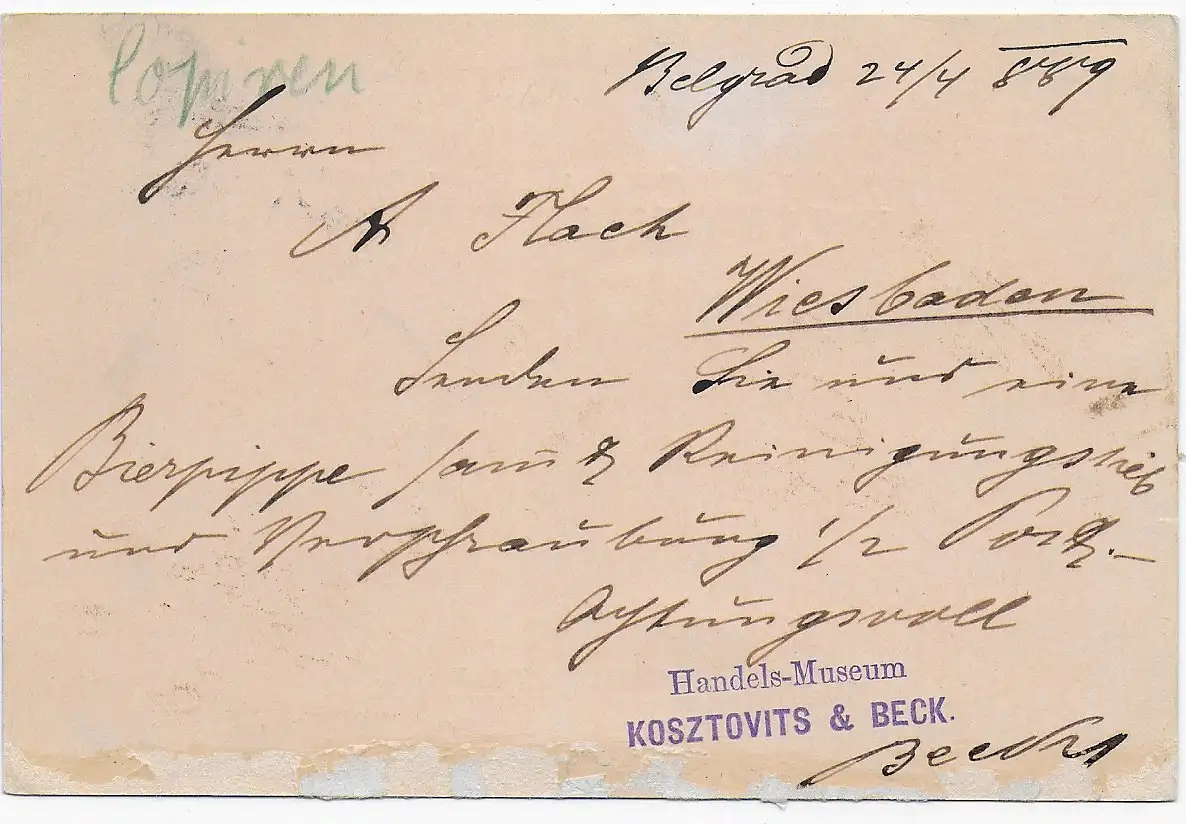 Copiren
Belgrad 24/4 889
Herrn
A Flach
Wiesbaden
Senden Sie uns eine
Bierpippe samt Reinigungs
und Verschraubung 1/2
Achtungsvoll
Handels-Museum
KOSZTOVITS & BECK.